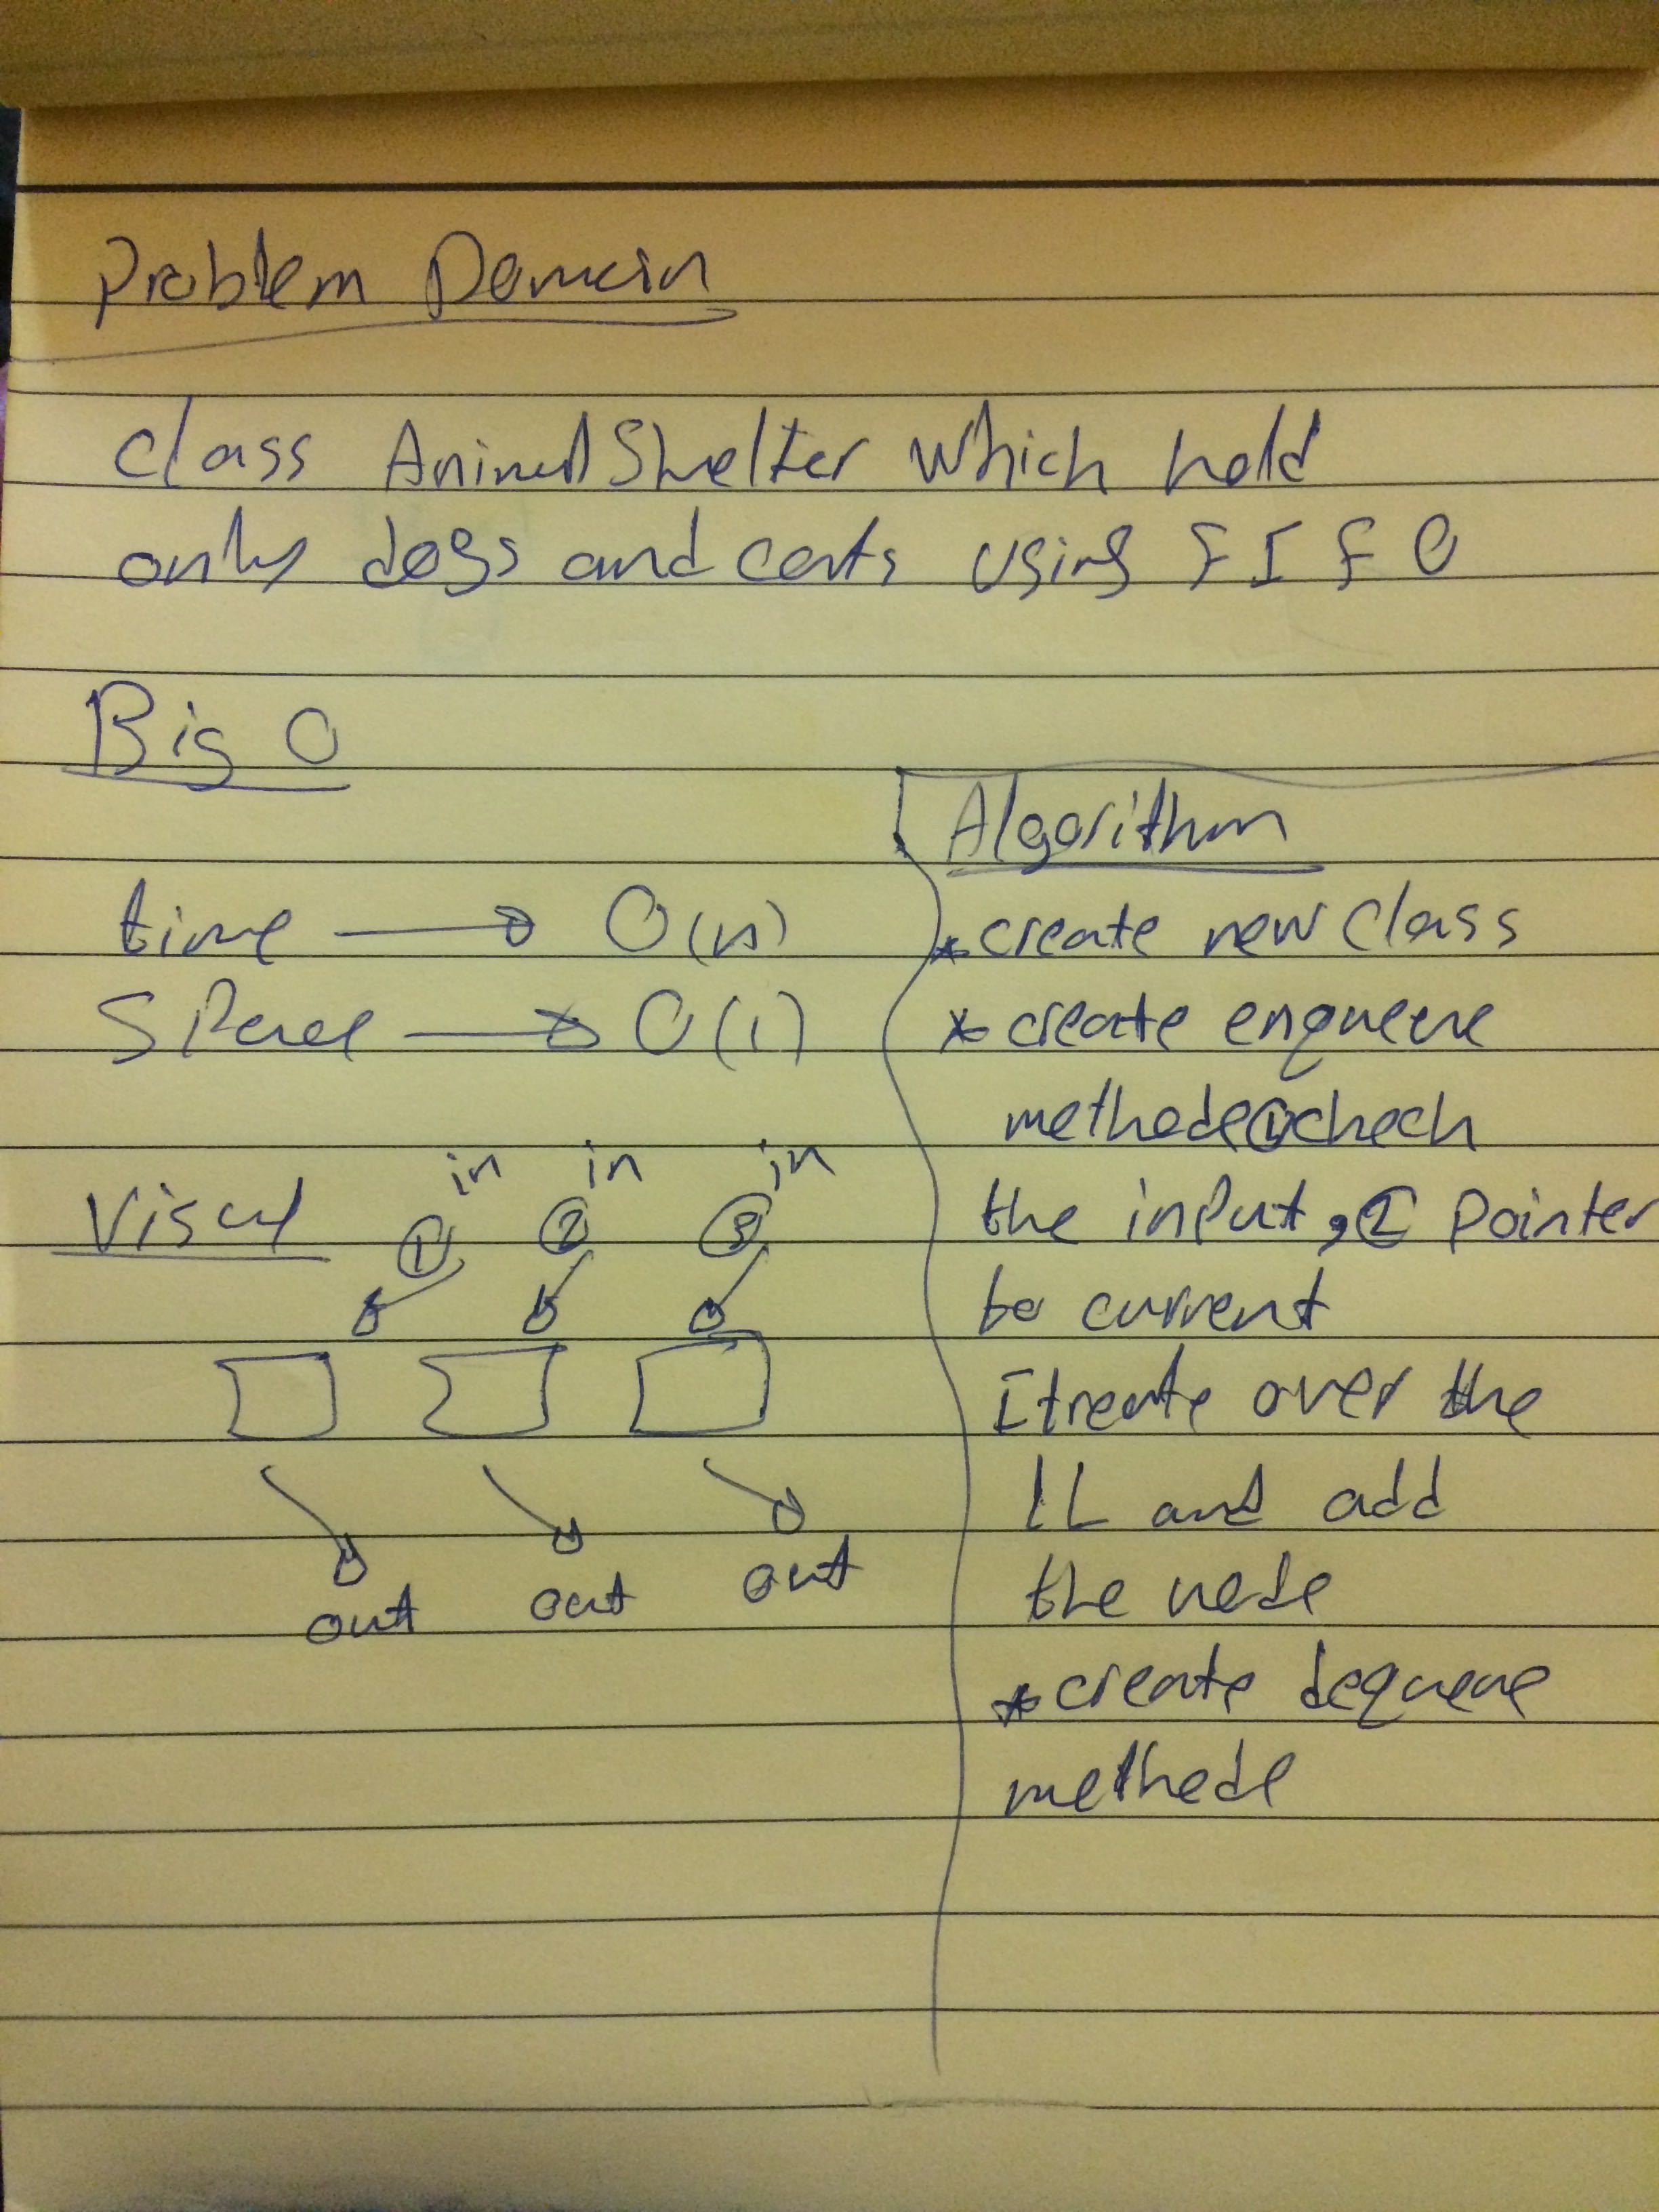 Problem Domain
class AnimalShelter which hold
only dogs and cats using FIFO
Big O
time → O(n)
Space → O(1)
Visual
in in in
① ② ③
out out out
Algorithm
* create new class
* create enqueue
methode ① check
the input, ② pointer
be current
Itreate over the
LL and add
the node
* create dequeue
methode